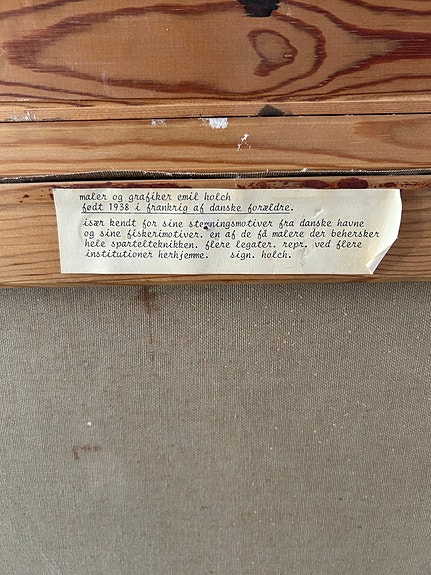 maler og grafiker emil holch
født 1938 i frankrig af danske forældre.
især kendt for sine stemningsmotiver fra danske havne
og sine fiskerimotiver. en af de få malere der behersker
hele spartelteknikken. flere legater. repr. ved flere
institutioner herhjemme. sign. holch.